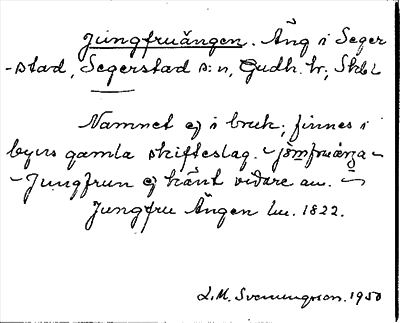 Jungfruängen. Äng i Seger
-stad, Segerstad s:n, Gudh. hr; Skbl
Namnet ej i bruk, finnes i
byns gamla skifteslag. -jömfruänga-
-Jungfrun ej känt vidare av. -
Jungfru Ängen lm. 1822.
L.M. Svenungsson. 1950